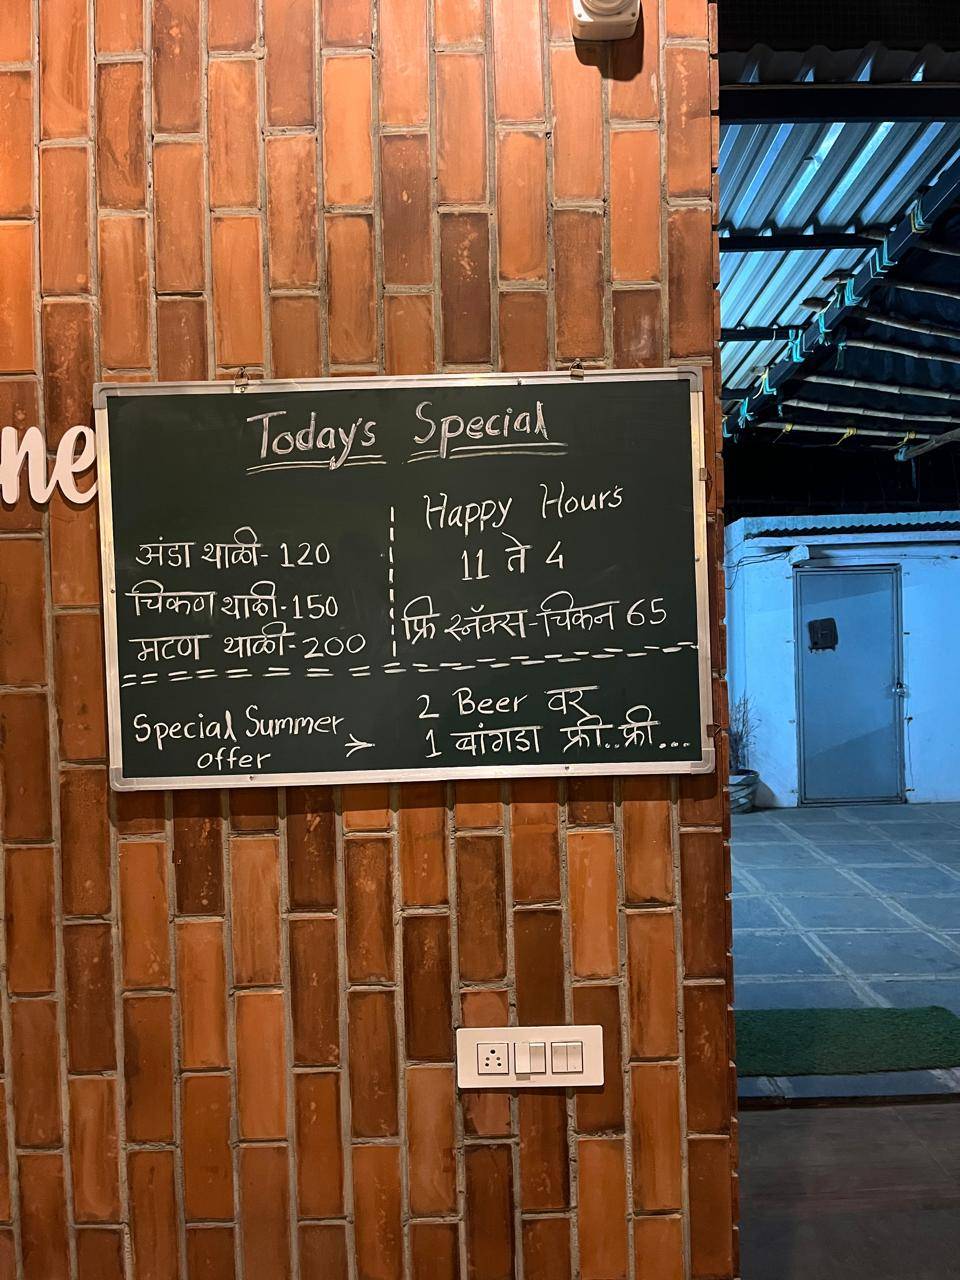 ne
Today's Special
अंडा थाळी- 120
चिकण थाळी-150
मटण थाळी-200
Happy Hours
11 ते 4
फ्रि स्नॅक्स-चिकन 65
Special Summer
offer
2 Beer वर
1 बांगडा फ्री..फ्री...